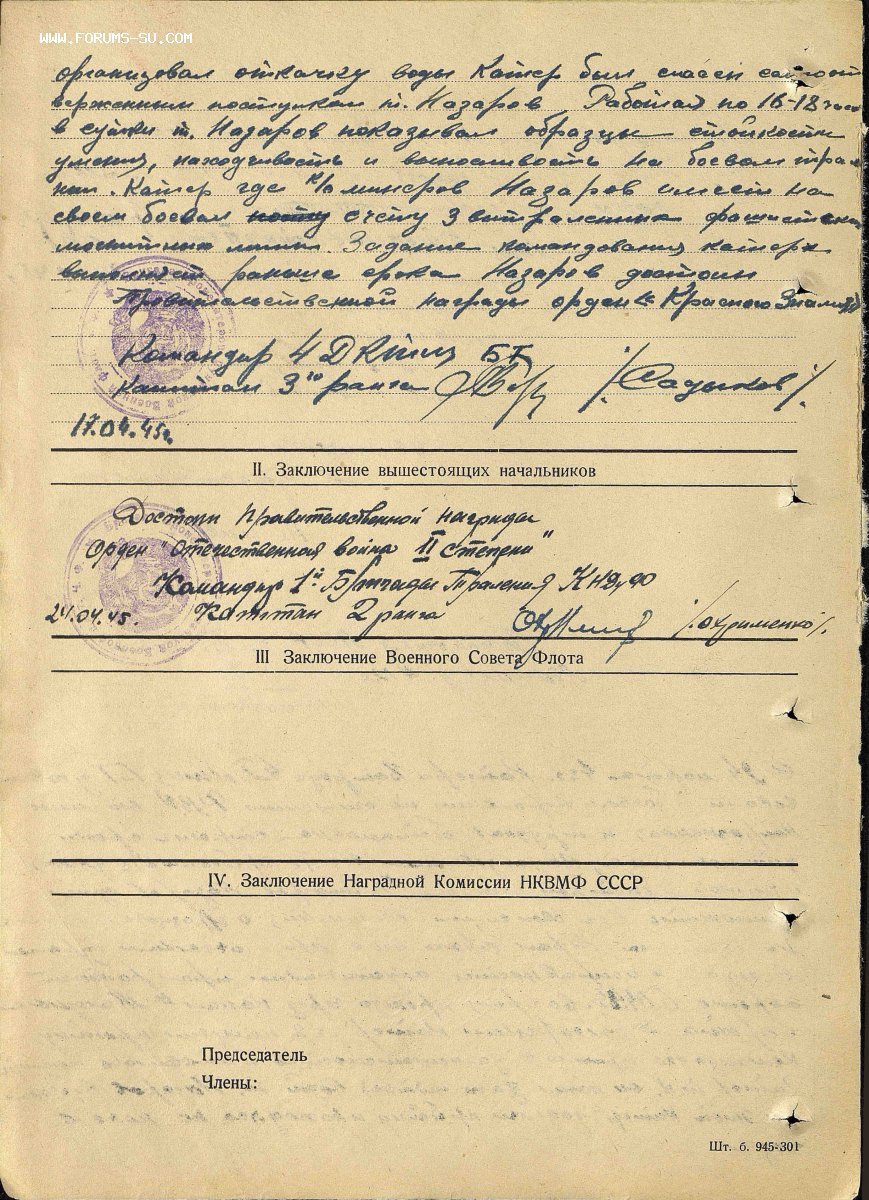 WWW.FORUMS-SU.COM
организовал откачку воды Катер был спасен самоот
верженным поступком т. Назаров Работая по 16-18 час
в сутки т. Назаров показывал образцы стойкости
умения, находчивость и выносливость на боевом трале
нии. Катер где к/о минеров Назаров имеет на
своем боевом счету 3 вытраленных фашистских
мины. Задание командования катера
выполняет раньше срока Назаров достоин
Правительственной награды орденом Красного Знамя
Командир 4 ДКТЩ БТ
капитан 3го ранга /Садыков/.
17.04.45г.
II. Заключение вышестоящих начальников
Достоин Правительственной награды
Орден "Отечественная война II степени"
Командир 1й Бригады Траления
24.04.45. Капитан 2 ранга /Охрименко/.
III Заключение Военного Совета Флота
IV. Заключение Наградной Комиссии НКВМФ СССР
Председатель
Члены:
Шт. б. 945-301